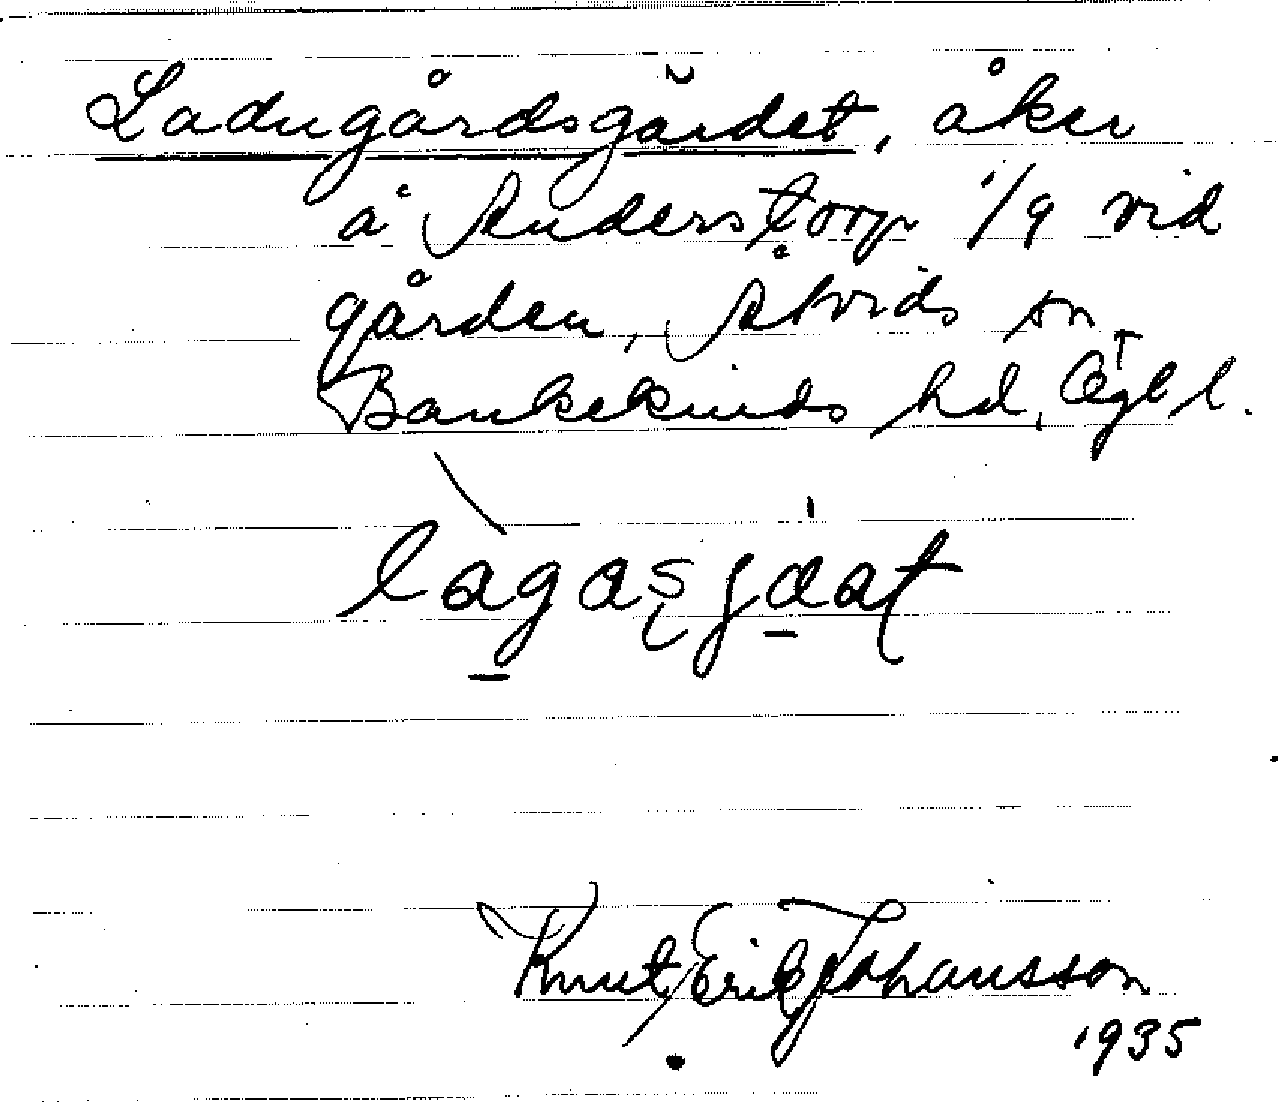 Ladugårdsgärdet, åker
å Anderstorp 1/9 vid
gården, Åtvids sn,
Bankekinds hd, Ögtl.
lagasjäat
Knut Erik Johansson
1935